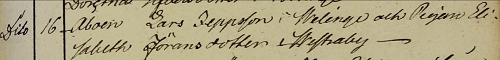 Dito 16 Aboen Lars Jeppsson i Melinge och Pigan Eli-
sabeth Jörans dotter i Westraby